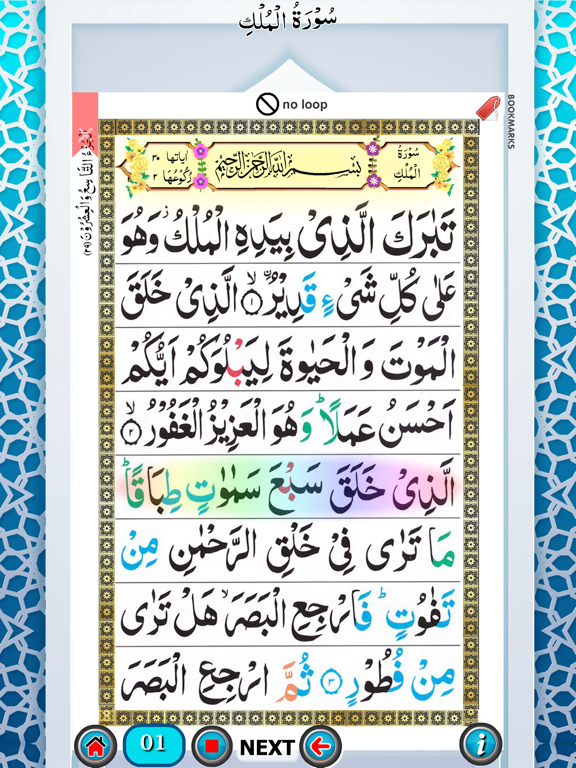 سُوْرَةُ الْمُلْكِ
no loop
BOOKMARKS
اَلْجُزْءُ التَّاسِعُ وَالْعِشْرُوْنَ (٢٩)
سُوْرَةُ الْمُلْكِ
بِسْمِ اللّٰهِ الرَّحْمٰنِ الرَّحِيْمِ
اٰيَاتُهَا ٣٠
رُكُوْعُهَا ٢
تَبٰرَكَ الَّذِىْ بِيَدِهِ الْمُلْكُ ز وَهُوَ
عَلٰى كُلِّ شَىْءٍ قَدِيْرُ ۙ﴿١﴾ الَّذِىْ خَلَقَ
الْمَوْتَ وَالْحَيٰوةَ لِيَبْلُوَكُمْ اَيُّكُمْ
اَحْسَنُ عَمَلًا ؕ وَهُوَ الْعَزِيْزُ الْغَفُوْرُ ۙ﴿٢﴾
الَّذِىْ خَلَقَ سَبْعَ سَمٰوٰتٍ طِبَاقًا ؕ
مَا تَرٰى فِىْ خَلْقِ الرَّحْمٰنِ مِنْ
تَفٰوُتٍ ؕ فَارْجِعِ الْبَصَرَ ۙ هَلْ تَرٰى
مِنْ فُطُوْرٍ ﴿٣﴾ ثُمَّ ارْجِعِ الْبَصَرَ
01
NEXT
i